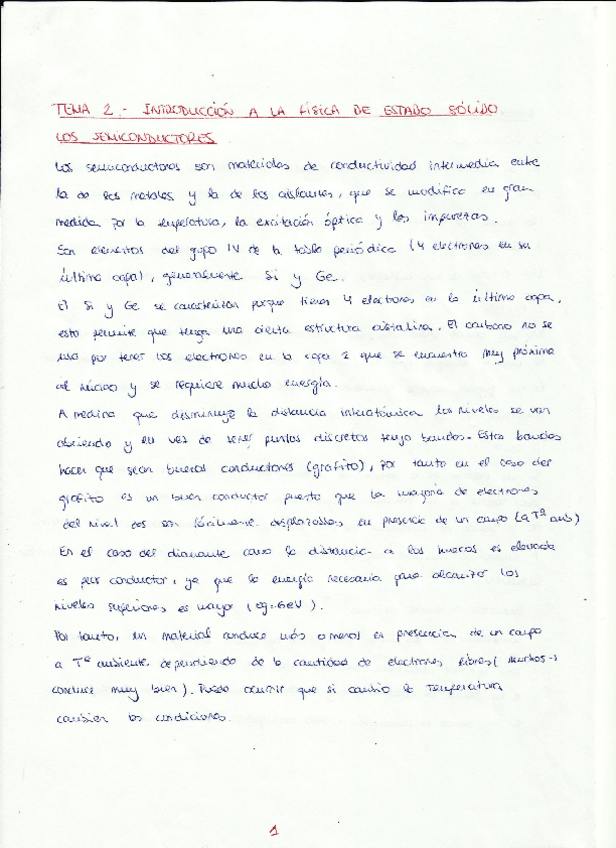 TEMA 2.- INTRODUCCIÓN A LA FÍSICA DE ESTADO SÓLIDO
LOS SEMICONDUCTORES
Los semiconductores son materiales de conductividad intermedia entre
la de los metales y la de los aislantes, que se modifica en gran
medida por la temperatura, la excitación óptica y las impurezas.
Son elementos del grupo IV de la tabla periódica (4 electrones en su
última capa), generalmente Si y Ge.
El Si y Ge se caracterizan porque tienen 4 electrones en la última capa,
esto permite que tenga una cierta estructura cristalina. El carbono no se
usa por tener los electrones en la capa 2 que se encuentra muy próxima
al núcleo y se requiere mucha energía.
A medida que disminuye la distancia interatómica los niveles se van
abriendo y en vez de tener puntos discretos tengo bandas. Estas bandas
hacen que sean buenos conductores (grafito), por tanto en el caso del
grafito es un buen conductor puesto que la mayoría de electrones
del nivel dos son fácilmente desplazables en presencia de un campo (a Tª amb)
En el caso del diamante como la distancia a los huecos es elevada
es peor conductor, ya que la energía necesaria para alcanzar los
niveles superiores es mayor (eg=6eV).
Por tanto, un material conduce más o menos en presencia de un campo
a Tª ambiente dependiendo de la cantidad de electrones libres (muchos→
conduce muy bien). Puede ocurrir que si cambio la temperatura
cambien las condiciones.
1